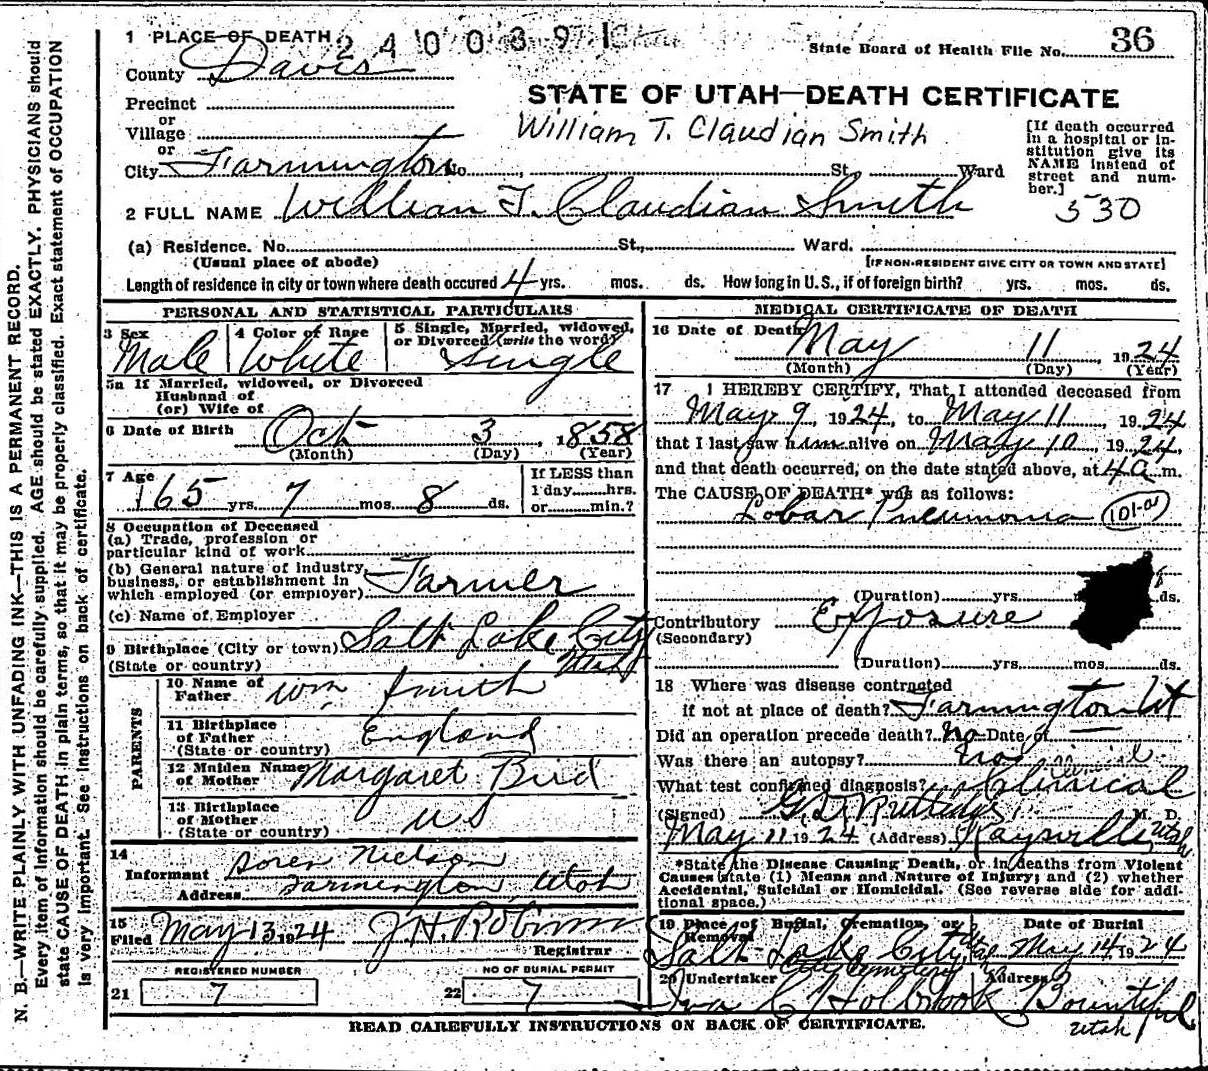 N. B.—WRITE PLAINLY WITH UNFADING INK—THIS IS A PERMANENT RECORD.
Every item of information should be carefully supplied. AGE should be stated EXACTLY. PHYSICIANS should
state CAUSE OF DEATH in plain terms, so that it may be properly classified. Exact statement of OCCUPATION
is very important. See instructions on back of certificate.
1 PLACE OF DEATH 2400391
State Board of Health File No. 36
County Davis
STATE OF UTAH—DEATH CERTIFICATE
Precinct
or
Village
William T. Claudian Smith
or
City Farmington No. , St. Ward
[If death occurred
in a hospital or in-
stitution give its
NAME instead of
street and num-
ber.]
530
2 FULL NAME William T. Claudian Smith
(a) Residence. No. St., Ward.
(Usual place of abode) [IF NON-RESIDENT GIVE CITY OR TOWN AND STATE]
Length of residence in city or town where death occured 4 yrs. mos. ds. How long in U. S., if of foreign birth? yrs. mos. ds.
PERSONAL AND STATISTICAL PARTICULARS
3 Sex 4 Color of Race 5 Single, Married, widowed,
or Divorced (write the word)
Male White Single
5a If Married, widowed, or Divorced
Husband of
(or) Wife of
6 Date of Birth Oct 3, 1858
(Month) (Day) (Year)
7 Age
65 yrs. 7 mos. 8 ds.
If LESS than
1 day......hrs.
or......min.?
8 Occupation of Deceased
(a) Trade, profession or
particular kind of work
(b) General nature of industry,
business, or establishment in
which employed (or employer) Farmer
(c) Name of Employer
9 Birthplace (City or town) Salt Lake City
(State or country) Utah
PARENTS
10 Name of
Father Wm Smith
11 Birthplace
of Father England
(State or country)
12 Maiden Name
of Mother Margaret Bird
13 Birthplace
of Mother U S
(State or country)
14
Informant Soren Nielson
Address Farmington, Utah
15
Filed May 13 1924 J. H. Robinson
Registrar
REGISTERED NUMBER NO OF BURIAL PERMIT
21 7 22 7
MEDICAL CERTIFICATE OF DEATH
16 Date of Death May 11, 1924
(Month) (Day) (Year)
17 I HEREBY CERTIFY, That I attended deceased from
May 9, 1924, to May 11, 1924
that I last saw him alive on May 10, 1924,
and that death occurred, on the date stated above, at 4 a m.
The CAUSE OF DEATH* was as follows:
Lobar Pneumonia 101-a
(Duration) yrs. ds.
Contributory Exposure
(Secondary)
(Duration) yrs. mos. ds.
18 Where was disease contracted
if not at place of death? Farmington Ut
Did an operation precede death? No Date of
Was there an autopsy? No
What test confirmed diagnosis? Clinical
(Signed) M. D.
May 11 1924 (Address) Kaysville, Utah
*State the Disease Causing Death, or in deaths from Violent
Causes state (1) Means and Nature of Injury; and (2) whether
Accidental, Suicidal or Homicidal. (See reverse side for addi-
tional space.)
19 Place of Burial, Cremation, or Date of Burial
Removal
Salt Lake City Utah May 14, 1924
City Cemetery
20 Undertaker Address
Iva C Holbrook Bountiful
Utah
READ CAREFULLY INSTRUCTIONS ON BACK OF CERTIFICATE.